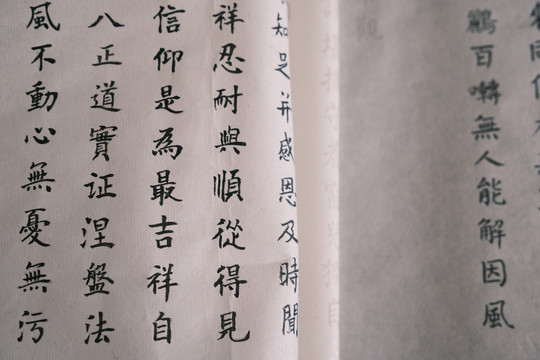 鸝百囀無人能解因風
知足并感恩及時聞
祥忍耐與順從得見
信仰是為最吉祥自
八正道實证涅盤法
風不動心無憂無污